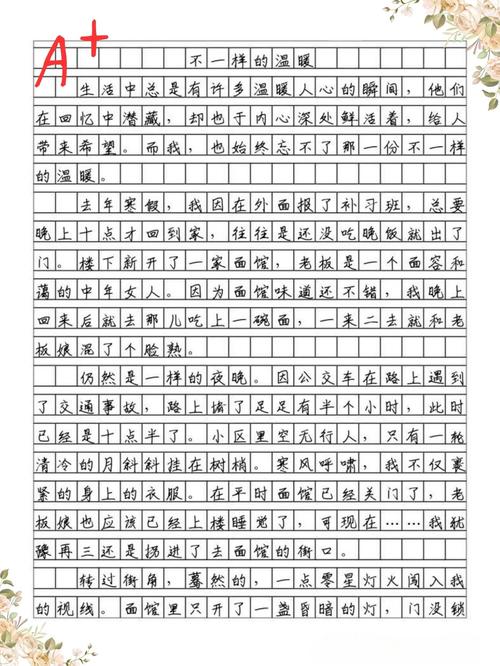 A+
不一样的温暖
生活中总是有许多温暖人心的瞬间，他们
在回忆中潜藏，却也于内心深处鲜活着，给人
带来希望。而我，也始终忘不了那一份不一样
的温暖。
去年寒假，我因在外面报了补习班，总要
晚上十点才回到家，往往是还没吃晚饭就出了
门。楼下新开了一家面馆，老板是一个面容和
蔼的中年女人。因为面馆味道还不错，我晚上
回来后就去那儿吃上一碗面，一来二去就和老
板娘混了个脸熟。
仍然是一样的夜晚。因公交车在路上遇到
了交通事故，路上堵了足足有半个小时，此时
已经是十点半了。小区里空无行人，只有一轮
清冷的月斜斜挂在树梢。寒风呼啸，我不仅裹
紧的身上的衣服。在平时面馆已经关门了，老
板娘也应该已经上楼睡觉了，可现在……我犹
豫再三还是拐进了去面馆的街口。
转过街角，蓦然的，一点零星灯火闯入我
的视线。面馆里只开了一盏昏暗的灯，门没锁